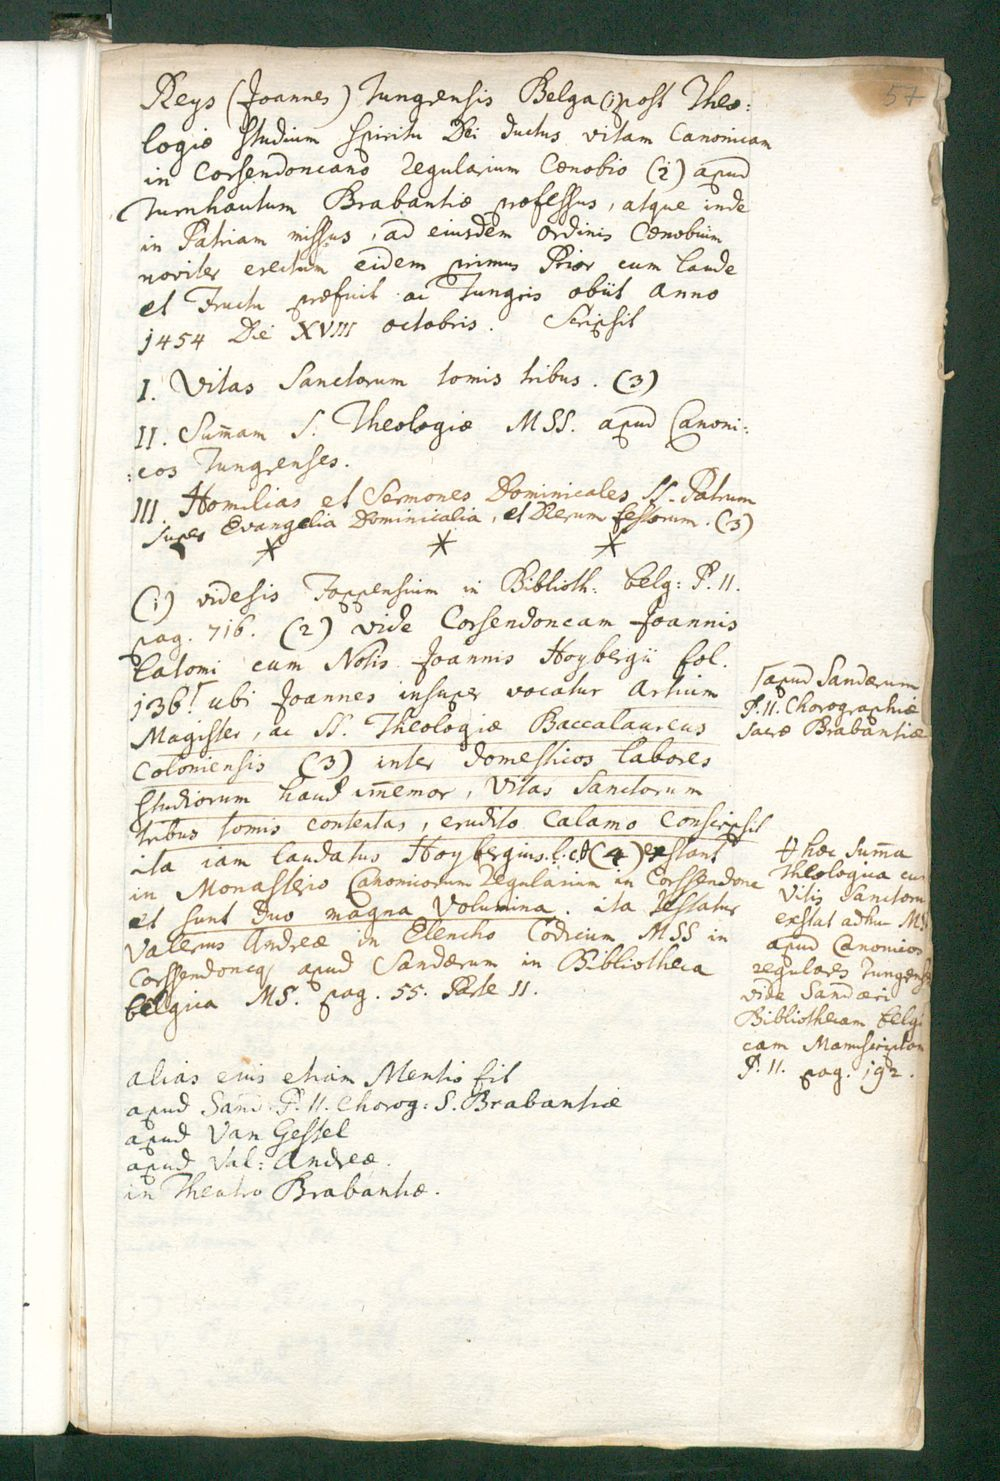 57
Reys (Joannes) Tungrensis Belga (1) post Theo:
logiæ studium spiritu Dei ductus vitam Canonicam
in Corsendoncano regularium Cœnobio (2) apud
Turnhautum Brabantiæ professus, atque inde
in Patriam missus, ad eiusdem ordinis Cœnobium
noviter erectum eidem primus Prior cum laude
et fructu præfuit ac Tungris obiit anno
1454 Die XVIII octobris. Scripsit
I. Vitas Sanctorum tomis tribus. (3)
II. Sum̄am S. Theologiæ MSS. apud Canoni:
:cos Tungrenses.
III. Homilias et Sermones Dominicales SS. Patrum
super Evangelia Dominicalia, et Dierum festorum. (3)
* * *
(1) videsis Foppensium in Biblioth: belg: P. II.
pag. 716. (2) vide Corsendoncam Joannis
Latomi cum Notis Joannis Hoybergii fol.
136 ubi Joannes insuper vocatur artium
Magister, ac SS. Theologiæ Baccalaureus
Coloniensis (3) inter domesticos labores
studiorum haud im̄emor, vitas Sanctorum
tribus tomis contentas, erudito calamo conscripsit
ita iam laudatus Hoybergius. l. c. (4) extant
in Monasterio Canonicorum regularium in Corssendonc
et sunt duo magna volumina. ita testatur
Valerius Andreæ in Elencho Codicum MSS in
Corssendoncq apud Sanderum in Bibliotheca
belgica MS. pag. 55. Parte II.
apud Sanderum
P. II. Chorographiæ
sacræ Brabantiæ
hæc Sum̄a
Theologica cum
Vitis Sanctorum
exstat adhuc MS.
apud Canonicos
regulares Tungrenses
vide Sanderi
Bibliothecam belgi
cam Manuscriptam
P. II. pag. 192.
alias eius etiam Mentio fit
apud Sand. P. II. Chorog: S. Brabantiæ
apud Van Gestel
apud Val: Andreæ.
in Theatro Brabantiæ.